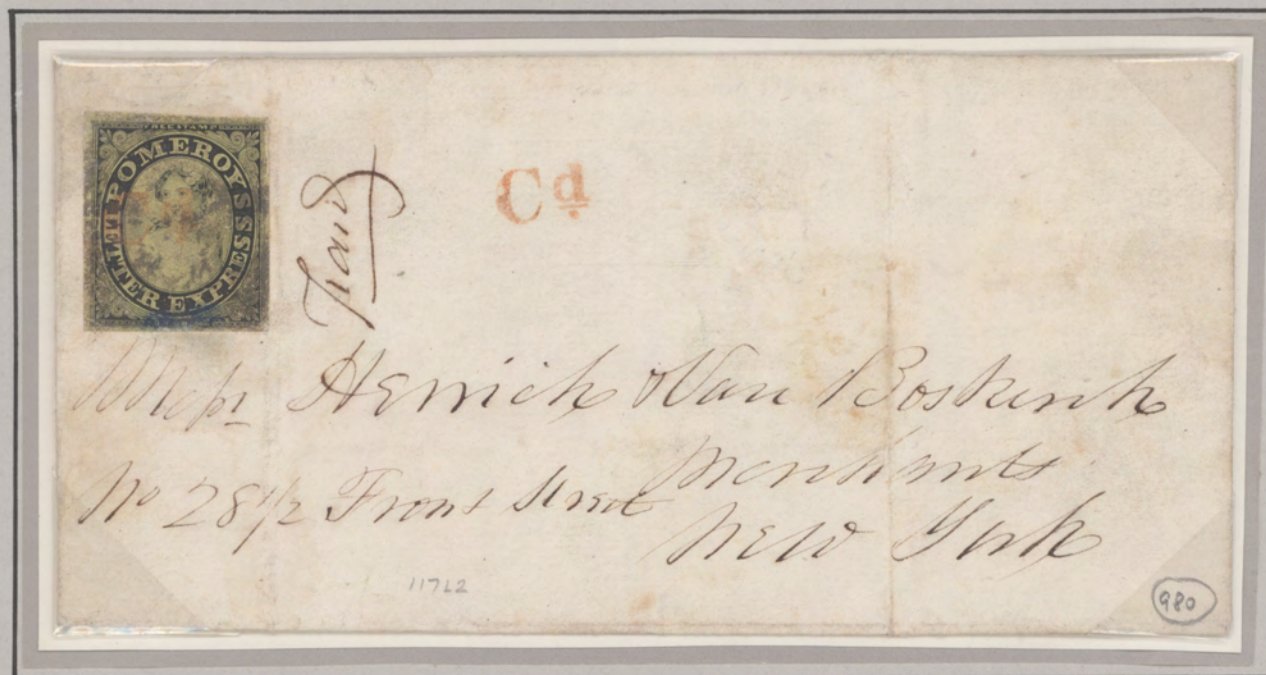 FREE STAMP
POMEROY'S
LETTER EXPRESS
Cd
Paid
Messrs Herrick & Van Boskerck
Merchants
No 28 1/2 Front Street
New York
117L2
980